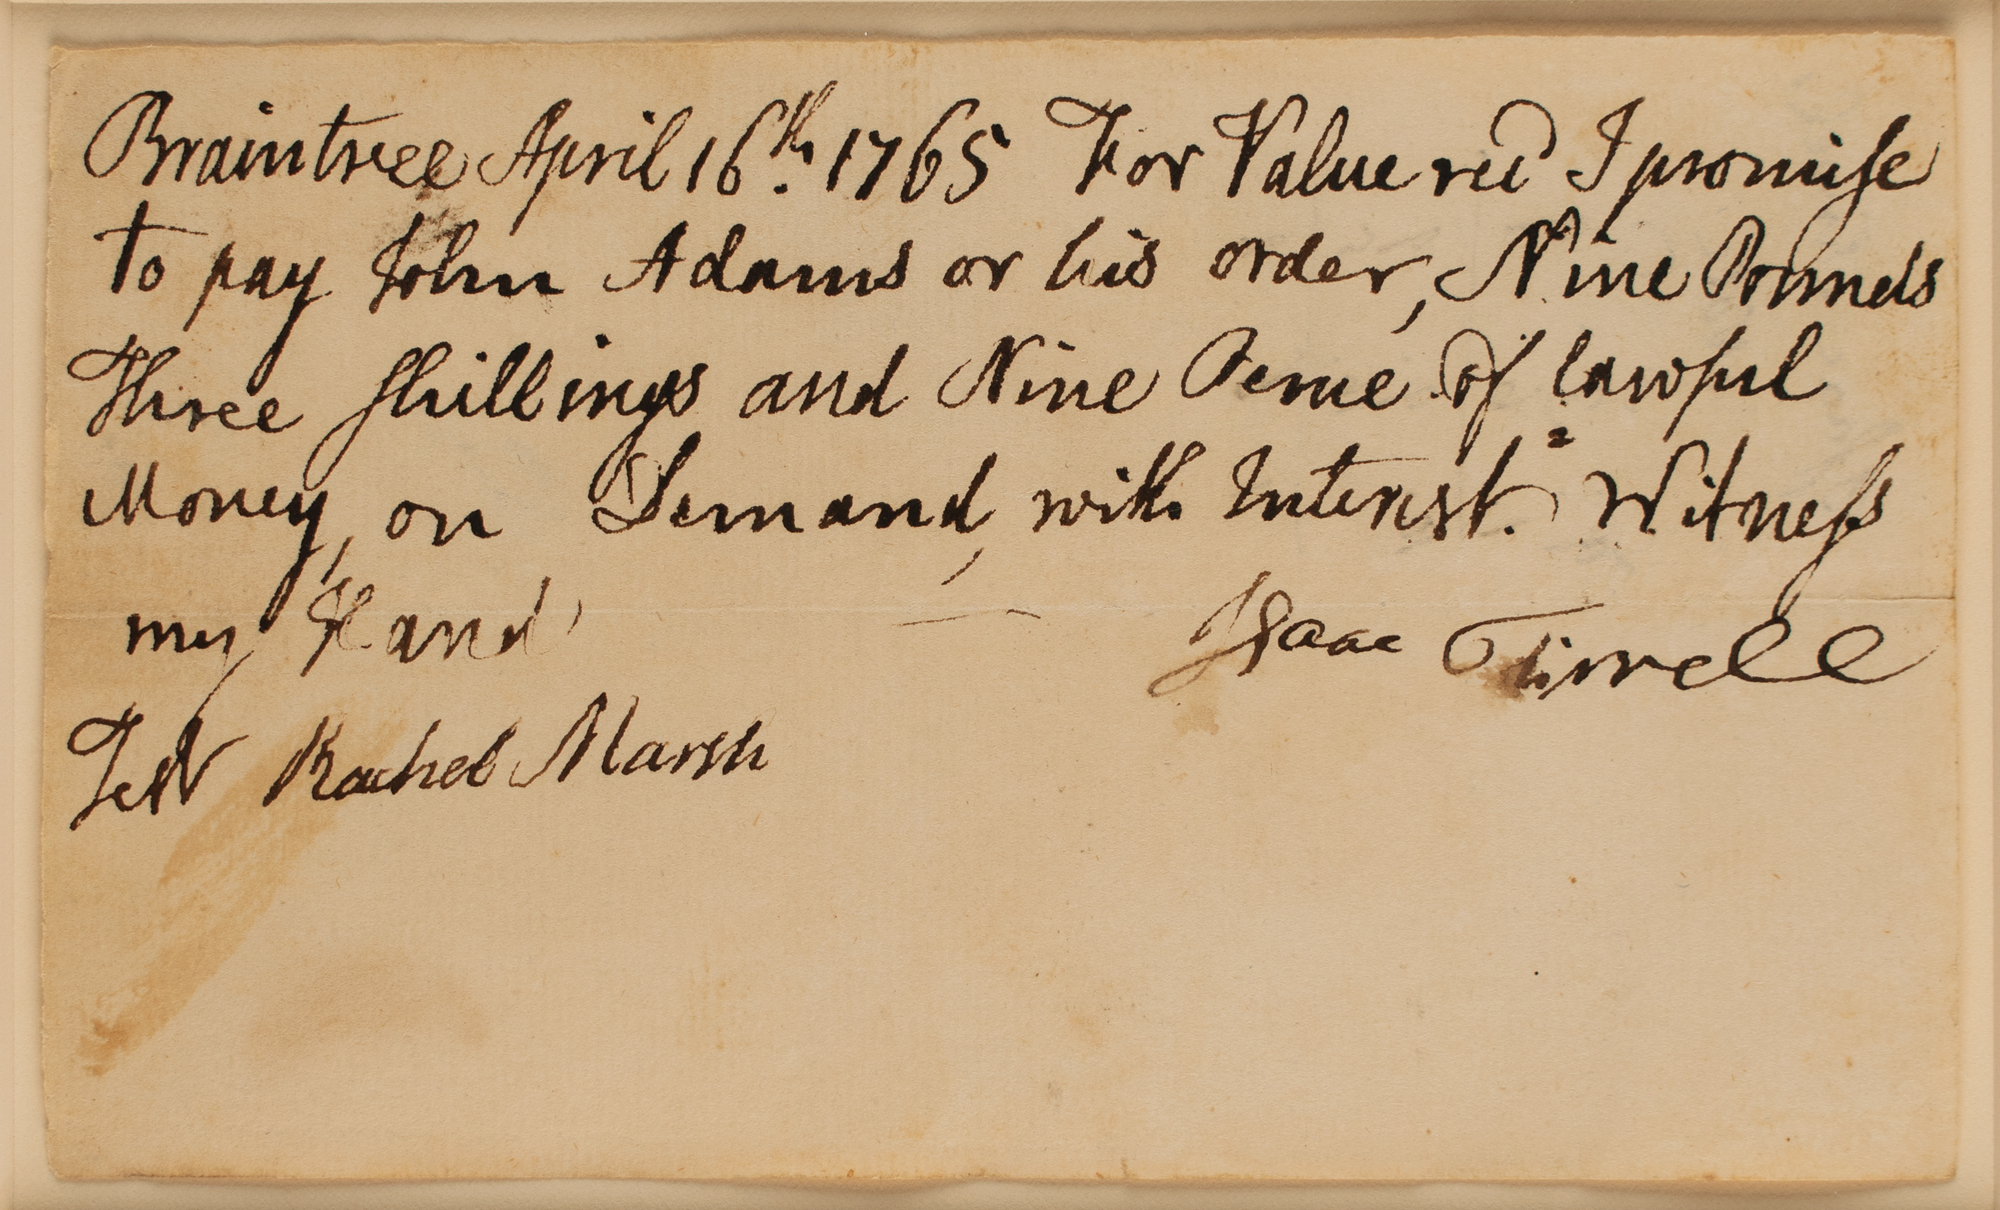 Braintree April 16th. 1765 For Value recd I promise
to pay John Adams or his order, Nine Pounds
Three shillings and Nine Pence of lawful
Money, on Demand, with Interest. Witness
my Hand
Isaac Tirrell
Test Rachel Marsh